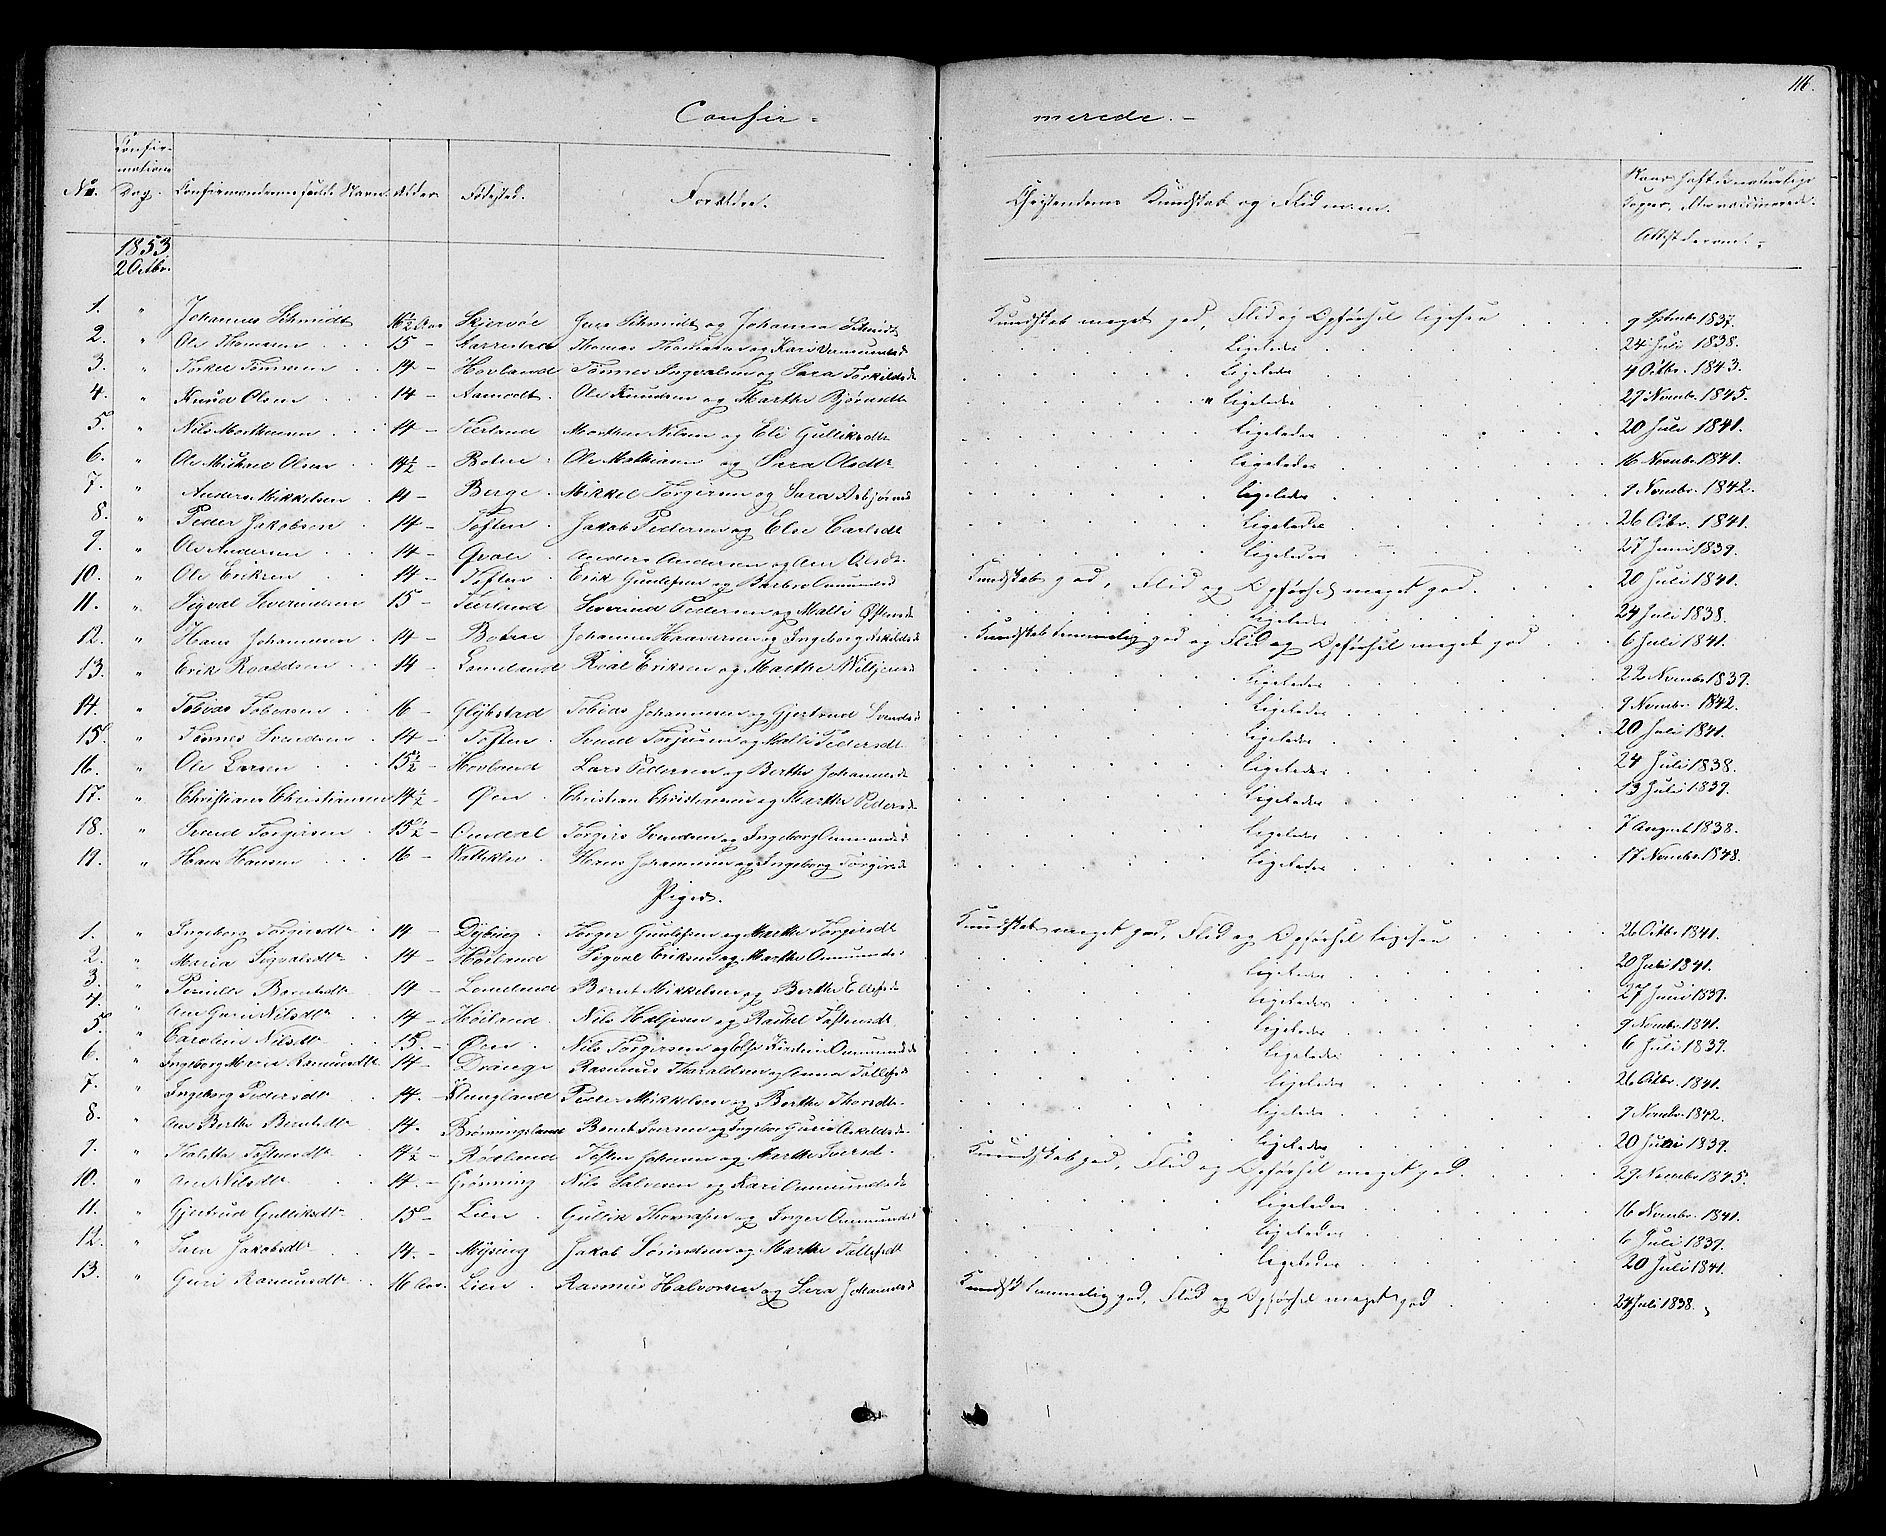 116.
Confir= merede. -
No. Confirmations Dag. Confirmandernes fulde Navn. Alder. Fødested. Forældre. Christendoms Kundskab og Flid m.m. Naar havt de naturlige Kopper, eller vaccinerede. Attest derom. -
1853
2 Octbr.
1. " Johannes Schmidt 16½ Aar Skjervøe Jens Schmidt og Johanna Schmidt Kundskab meget god, Flid og Opførsel ligesaa 9 Septembr 1837.
2. " Ole Thomasen 15 - Thomas Thomasen og Kari Ligeledes 24 Juli 1838.
3. " Torkel Tønnesen 14 - Hovland Tønnes Ingvalsen og Sara Torkilds Ligeledes 4 Octbr. 1843.
4. " Knud Olsen 14 - Aamodt. Ole Knudsen og Marthe Bjørnsdt " Ligeledes 29 Novembr 1845.
5. " Nils Morthensen 14 - Tierland Morthen Nilsen og Eli Gulliksdt Ligeledes 20 Juli 1841.
6. " Ole Mickael Olsen 14½ - Botne Ole Mathiasen og Sara Olsdt Ligeledes 16 Novembr 1841.
7. " Anders Mikkelsen 14 - Berge. Mikkel Torgersen og Sara Asbjørnsd Ligeledes 9 Novembr. 1842.
8. " Peder Jakobsen 14 - Toften. Jakob Pedersen og Else Carlsdt Ligeledes 26 Octbr. 1841.
9. " Ole Andersen 14 - Anders Andersen og Ane Olsdt Ligeledes 27 Juni 1839.
10. " Ole Eriksen 14 - Toften Erik Gunlefsen og Barbro Omundsd Kundskab god, Flid og Opførsel meget god. 20 Juli 1841.
11. " Sigval Severindsen 15 - Tierland Severind Pedersen og Malli Østensd Ligeledes 24 Juli 1838.
12. " Hans Johannesen 14 - Botne Johannes Haaversen og Ingeborg Askildsd Kundskab temmelig god og Flid og Opførsel meget god 6 Juli 1841.
13. " Erik Roaldsen 14 - Lomeland Roal Eriksen og Marthe Ligeledes 22 Novembr 1839.
14. " Tobias Tobiasen 16 - Gljbstad Tobias Johannesen og Gjertrud Svendsd Ligeledes 9 Novembr 1842.
15. " Tønnes Svendsen 14 - Toften. Svend Torjusen og Malli Pedersdt Ligeledes 20 Juli 1841.
16. " Ole Larsen 15½ - Hovland Lars Pedersen og Berthe Johannesd Ligeledes 24 Juli 1838.
17. " Christian Christiansen 14½ - Øen. Christian Christiansen og Marthe Pedersd Ligeledes 13 Juli 1839.
18. " Svend Torgersen 15½ - Omdal Torgers Svendsen og Ingeborg Ommundsd Ligeledes 7 August 1838.
19. " Hans Hansen 16 - Hans Johannesen og Ingeborg Torgersd Ligeledes 17 Novembr. 1848.
Piger.
1. " Ingeborg Torgersdt 14 - Dybing Torger Gunlefsen og Marthe Torgersdt Kundskab meget god, Flid og Opførsel ligesaa 26 Octbr 1841.
2. " Maria Sigvalsdt 14 - Høiland Sigval Eriksen og Marthe Ommundsd Ligeledes 20 Juli 1841.
3. " Pernille Berntsdt 14 - Lomeland Bernt Mikkelsen og Berthe Ellefsd Ligeledes 27 Juni 1839.
4. " Ane Guri Nilsdt 14 - Høiland. Nils Heljesen og Rachel Tostensdt Ligeledes 9 Novembr 1841.
5. " Caroline Nilsdt 15. - Øen. Nils Torgersen og Else Kirstin Ommundsd Ligeledes 6 Juli 1839.
6. " Ingeborg Maria Rasmusdt 14 - Drange Rasmus Tharaldsen og Anna Tollefsd Ligeledes 26 Octbr. 1841.
7. " Ingeborg Pedersdt 14. - Klungland Peder Mikkelsen og Berthe Thorsdt. Ligeledes 9 Novembr. 1842.
8. " Ane Berthe Berntsdt 14. Brønningsland Bernt Iversen og Ingeborg Guria Askildsd Ligeledes 20 Juni 1839.
9. " Tostensdt 14½ - Rødland Tosten Johannesen og Marthe Iversd. Kundskab god, Flid og Opførsel meget god. 29 Novembr 1845.
10. " Ane Nilsdt 14. - Grønning Nils Salvesen og Kari Ommundsd Ligeledes 16 Novembr. 1841.
11. " Gjertrud Gulliksdt 15 - Lien. Gullik Thomasen og Inger Ommundsd Ligeledes 6 Juli 1839.
12. " Sara Jakobsdt 14. - Mysing Jakob Sørensen og Marthe Tollefsdt Ligeledes 20 Juli 1841.
13. " Guri Rasmusdt 16 Aar. Lien. Rasmus Halvorsen og Sara Johannesd Kundsk temmelig god, Flid og Opførsel meget god 24 Juli 1838.